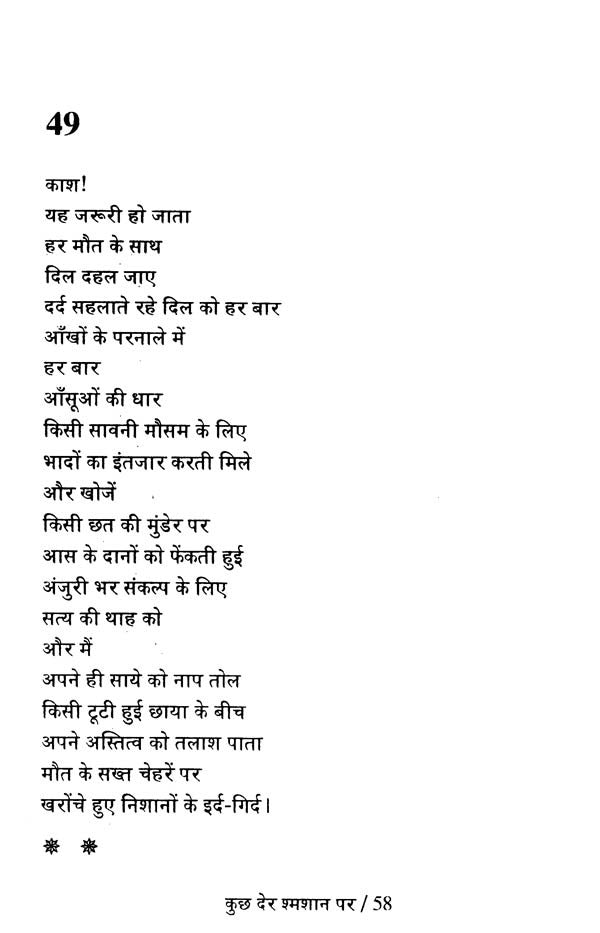 49
काश!
यह जरूरी हो जाता
हर मौत के साथ
दिल दहल जाए
दर्द सहलाते रहे दिल को हर बार
आँखों के परनाले में
हर बार
आँसूओं की धार
किसी सावनी मौसम के लिए
भादों का इंतजार करती मिले
और खोजें
किसी छत की मुंडेर पर
आस के दानों को फेंकती हुई
अंजुरी भर संकल्प के लिए
सत्य की थाह को
और मैं
अपने ही साये को नाप तोल
किसी टूटी हुई छाया के बीच
अपने अस्तित्व को तलाश पाता
मौत के सख्त चेहरें पर
खरोंचे हुए निशानों के इर्द-गिर्द।
कुछ देर श्मशान पर / 58